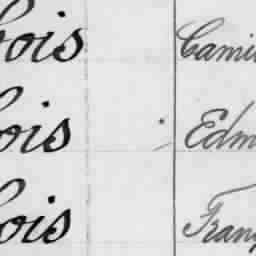 bois Cami
bois Edm
bois Fran